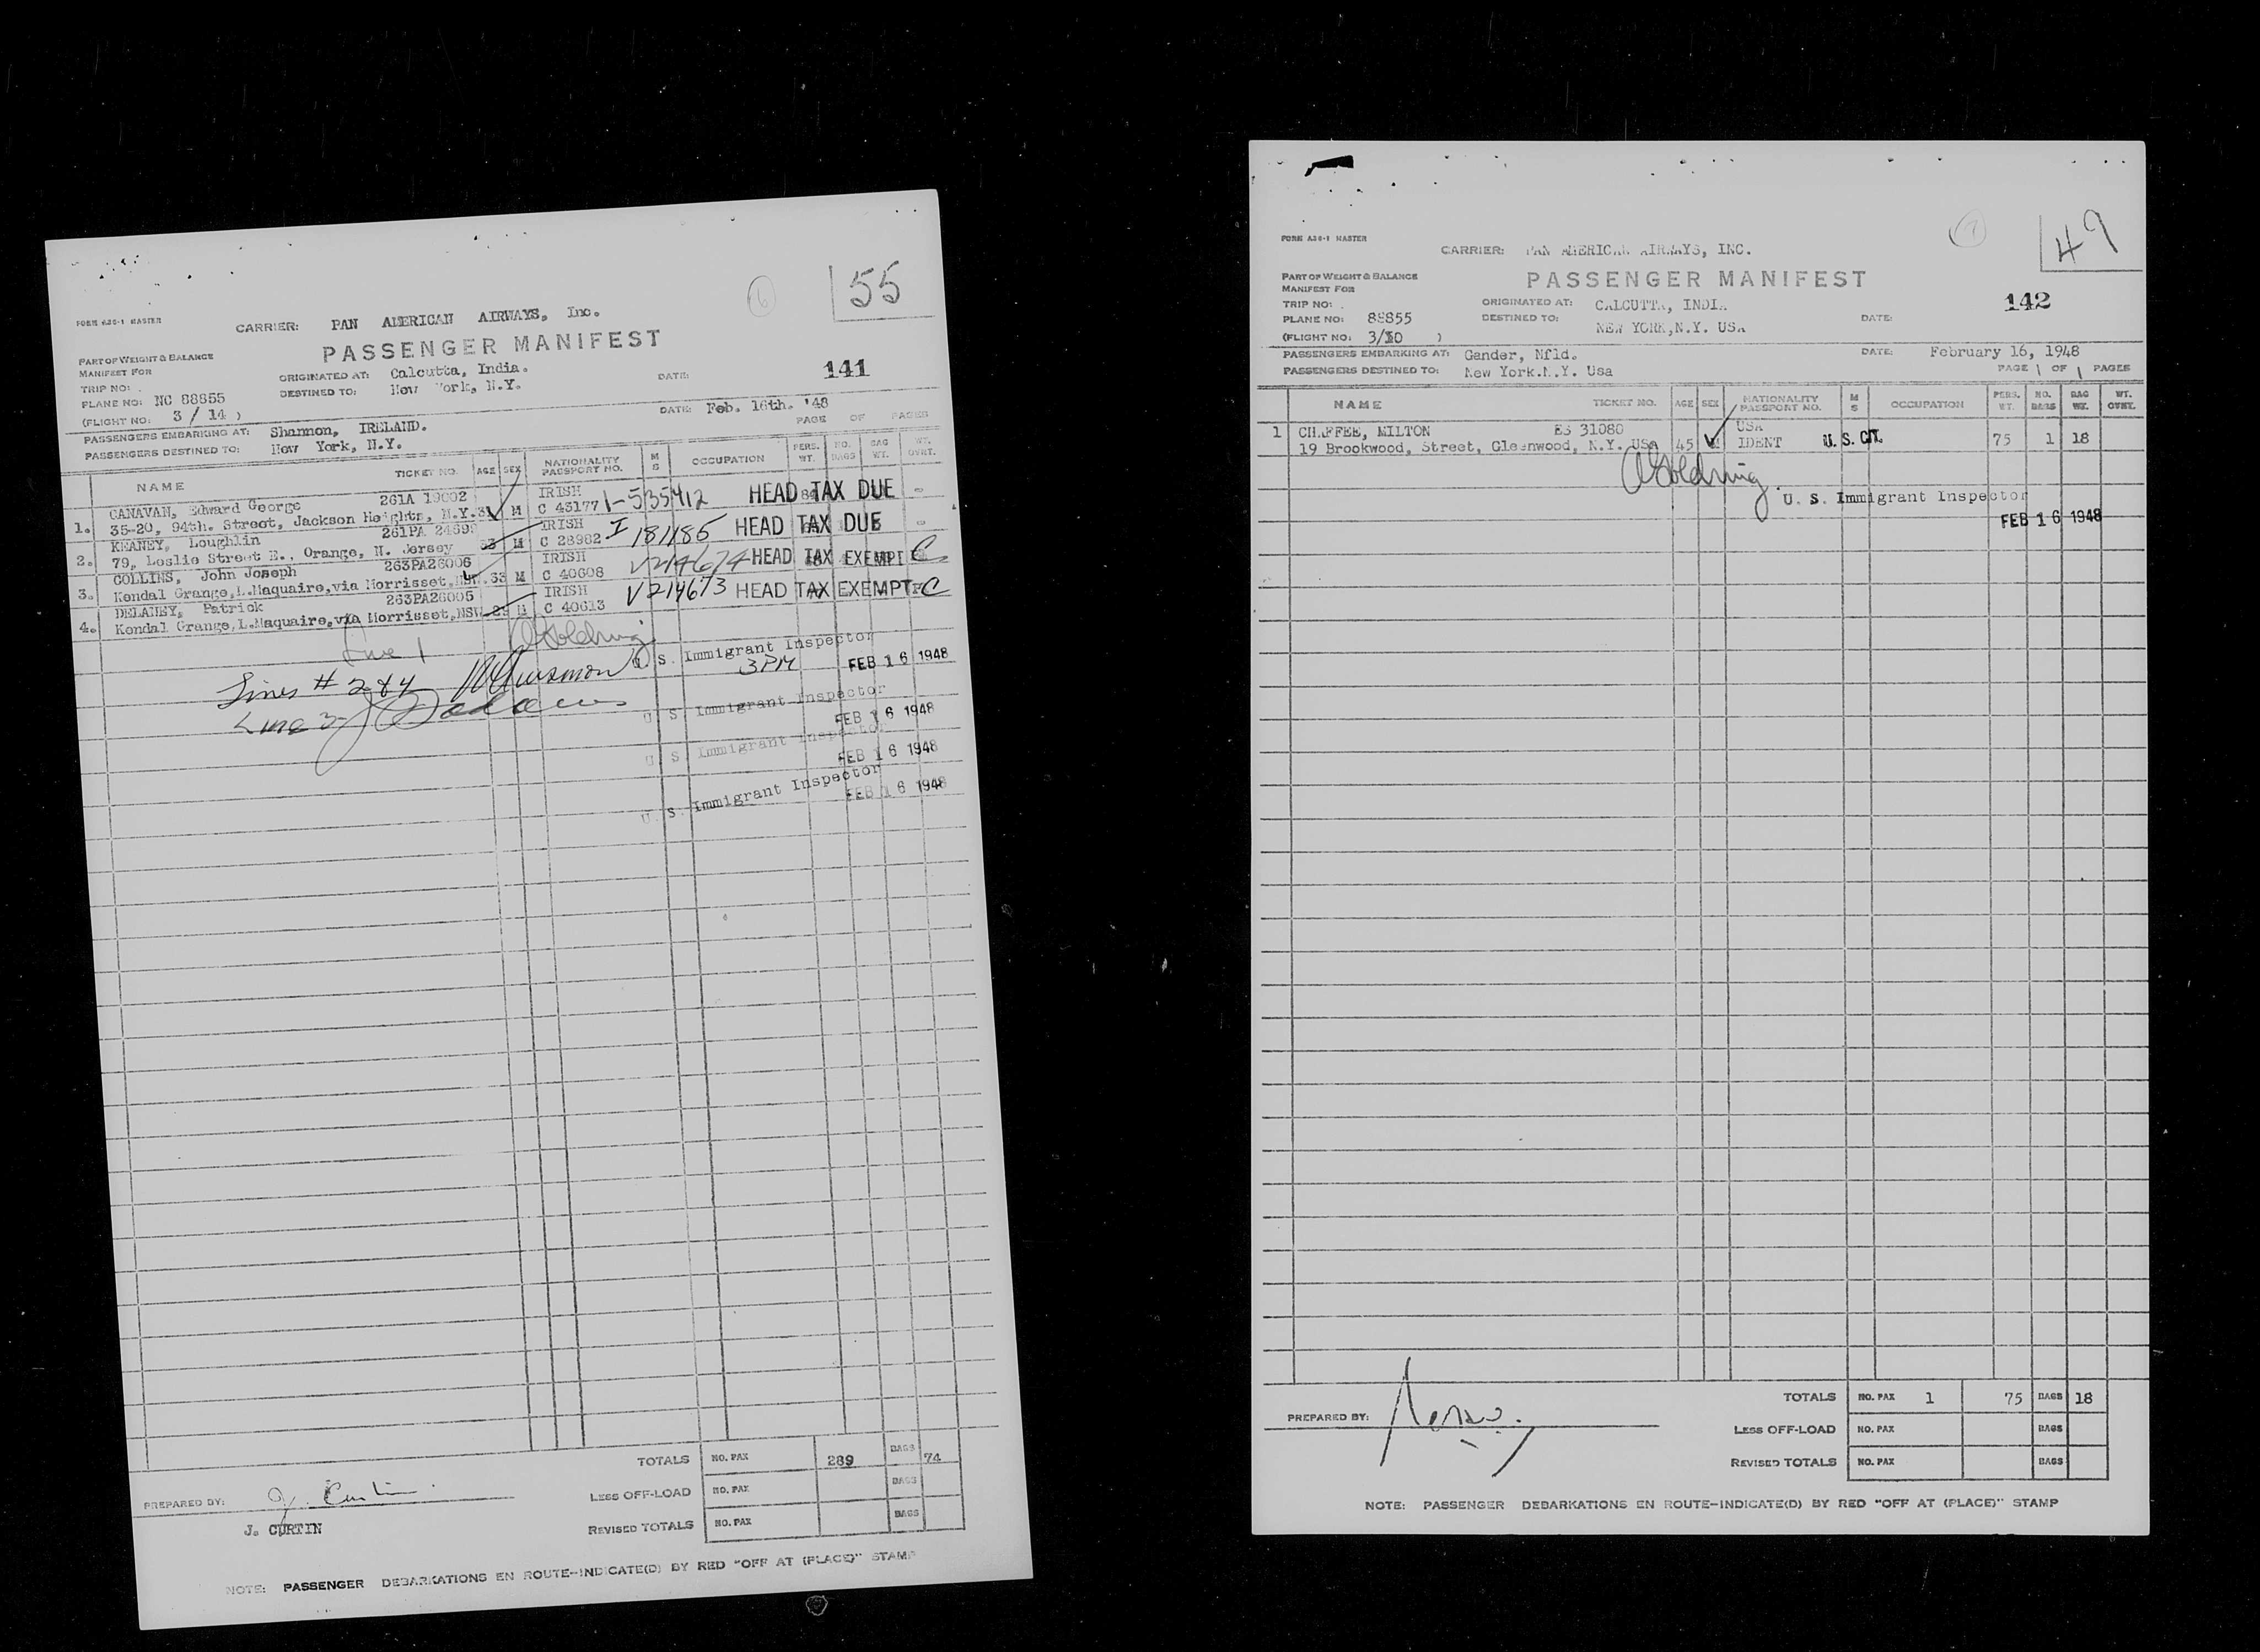 55
FORM A36-1 MASTER
CARRIER: PAN AMERICAN AIRWAYS, Inc.
PASSENGER MANIFEST
PART OF WEIGHT & BALANCE
MANIFEST FOR
141
TRIP NO:
ORIGINATED AT: Calcutta, India.
DATE:
PLANE NO: NC 88855
DESTINED TO: New York, N.Y.
(FLIGHT NO: 3 / 14 )
DATE: Feb. 16th. '48
PASSENGERS EMBARKING AT: Shannon, IRELAND.
PAGE OF PAGES
PASSENGERS DESTINED TO: New York, N.Y.
NAME TICKET NO. AGE SEX NATIONALITY PASSPORT NO. M S OCCUPATION PERS. WT. NO. BAGS BAG WT. WT. OVRT.
CANAVAN, Edward George 261A 19002 IRISH
1. 35-20, 94th. Street, Jackson Heights, N.Y. M C 43177 1-535412 HEAD TAX DUE
KEANEY, Loughlin 261PA IRISH
2. 79, Leslie Street E., Orange, N. Jersey M C 28982 I 181185 HEAD TAX DUE
COLLINS, John Joseph 263PA26006 IRISH
3. Kendal Grange, L.Maquaire, via Morrisset, NSW. 33 M C 40608 V214674 HEAD TAX EXEMPT C
DELANEY, Patrick 263PA26005 IRISH
4. Kendal Grange, L.Maquaire, via Morrisset, NSW M C 40613 V214673 HEAD TAX EXEMPT C
Line 1
U. S. Immigrant Inspector
3PM FEB 16 1948
Lines # 2 & 4
U. S. Immigrant Inspector
Line 3
FEB 16 1948
U. S. Immigrant Inspector
FEB 16 1948
U. S. Immigrant Inspector
FEB 16 1948
TOTALS NO. PAX 289 BAGS 74
PREPARED BY: J. Curtin
LESS OFF-LOAD NO. PAX BAGS
J. CURTIN
REVISED TOTALS NO. PAX BAGS
NOTE: PASSENGER DEBARKATIONS EN ROUTE-INDICATE(D) BY RED "OFF AT (PLACE)" STAMP
49
FORM A36-1 MASTER
CARRIER: PAN AMERICAN AIRWAYS, INC.
PART OF WEIGHT & BALANCE
PASSENGER MANIFEST
MANIFEST FOR
142
TRIP NO:
ORIGINATED AT: CALCUTTA, INDIA
PLANE NO: 88855
DESTINED TO: NEW YORK,N.Y. USA
DATE:
(FLIGHT NO: 3/10 )
PASSENGERS EMBARKING AT: Gander, Nfld.
DATE: February 16, 1948
PASSENGERS DESTINED TO: New York.N.Y. Usa
PAGE 1 OF 1 PAGES
NAME TICKET NO. AGE SEX NATIONALITY PASSPORT NO. M S OCCUPATION PERS. WT. NO. BAGS BAG WT. WT. OVRT.
1 CHAFFEE, MILTON ES 31080 USA
19 Brookwood, Street, Glenwood, N.Y. USA 45 IDENT U. S. CIT. 75 1 18
U. S. Immigrant Inspector
FEB 16 1948
TOTALS NO. PAX 1 75 BAGS 18
PREPARED BY:
LESS OFF-LOAD NO. PAX BAGS
REVISED TOTALS NO. PAX BAGS
NOTE: PASSENGER DEBARKATIONS EN ROUTE-INDICATE(D) BY RED "OFF AT (PLACE)" STAMP